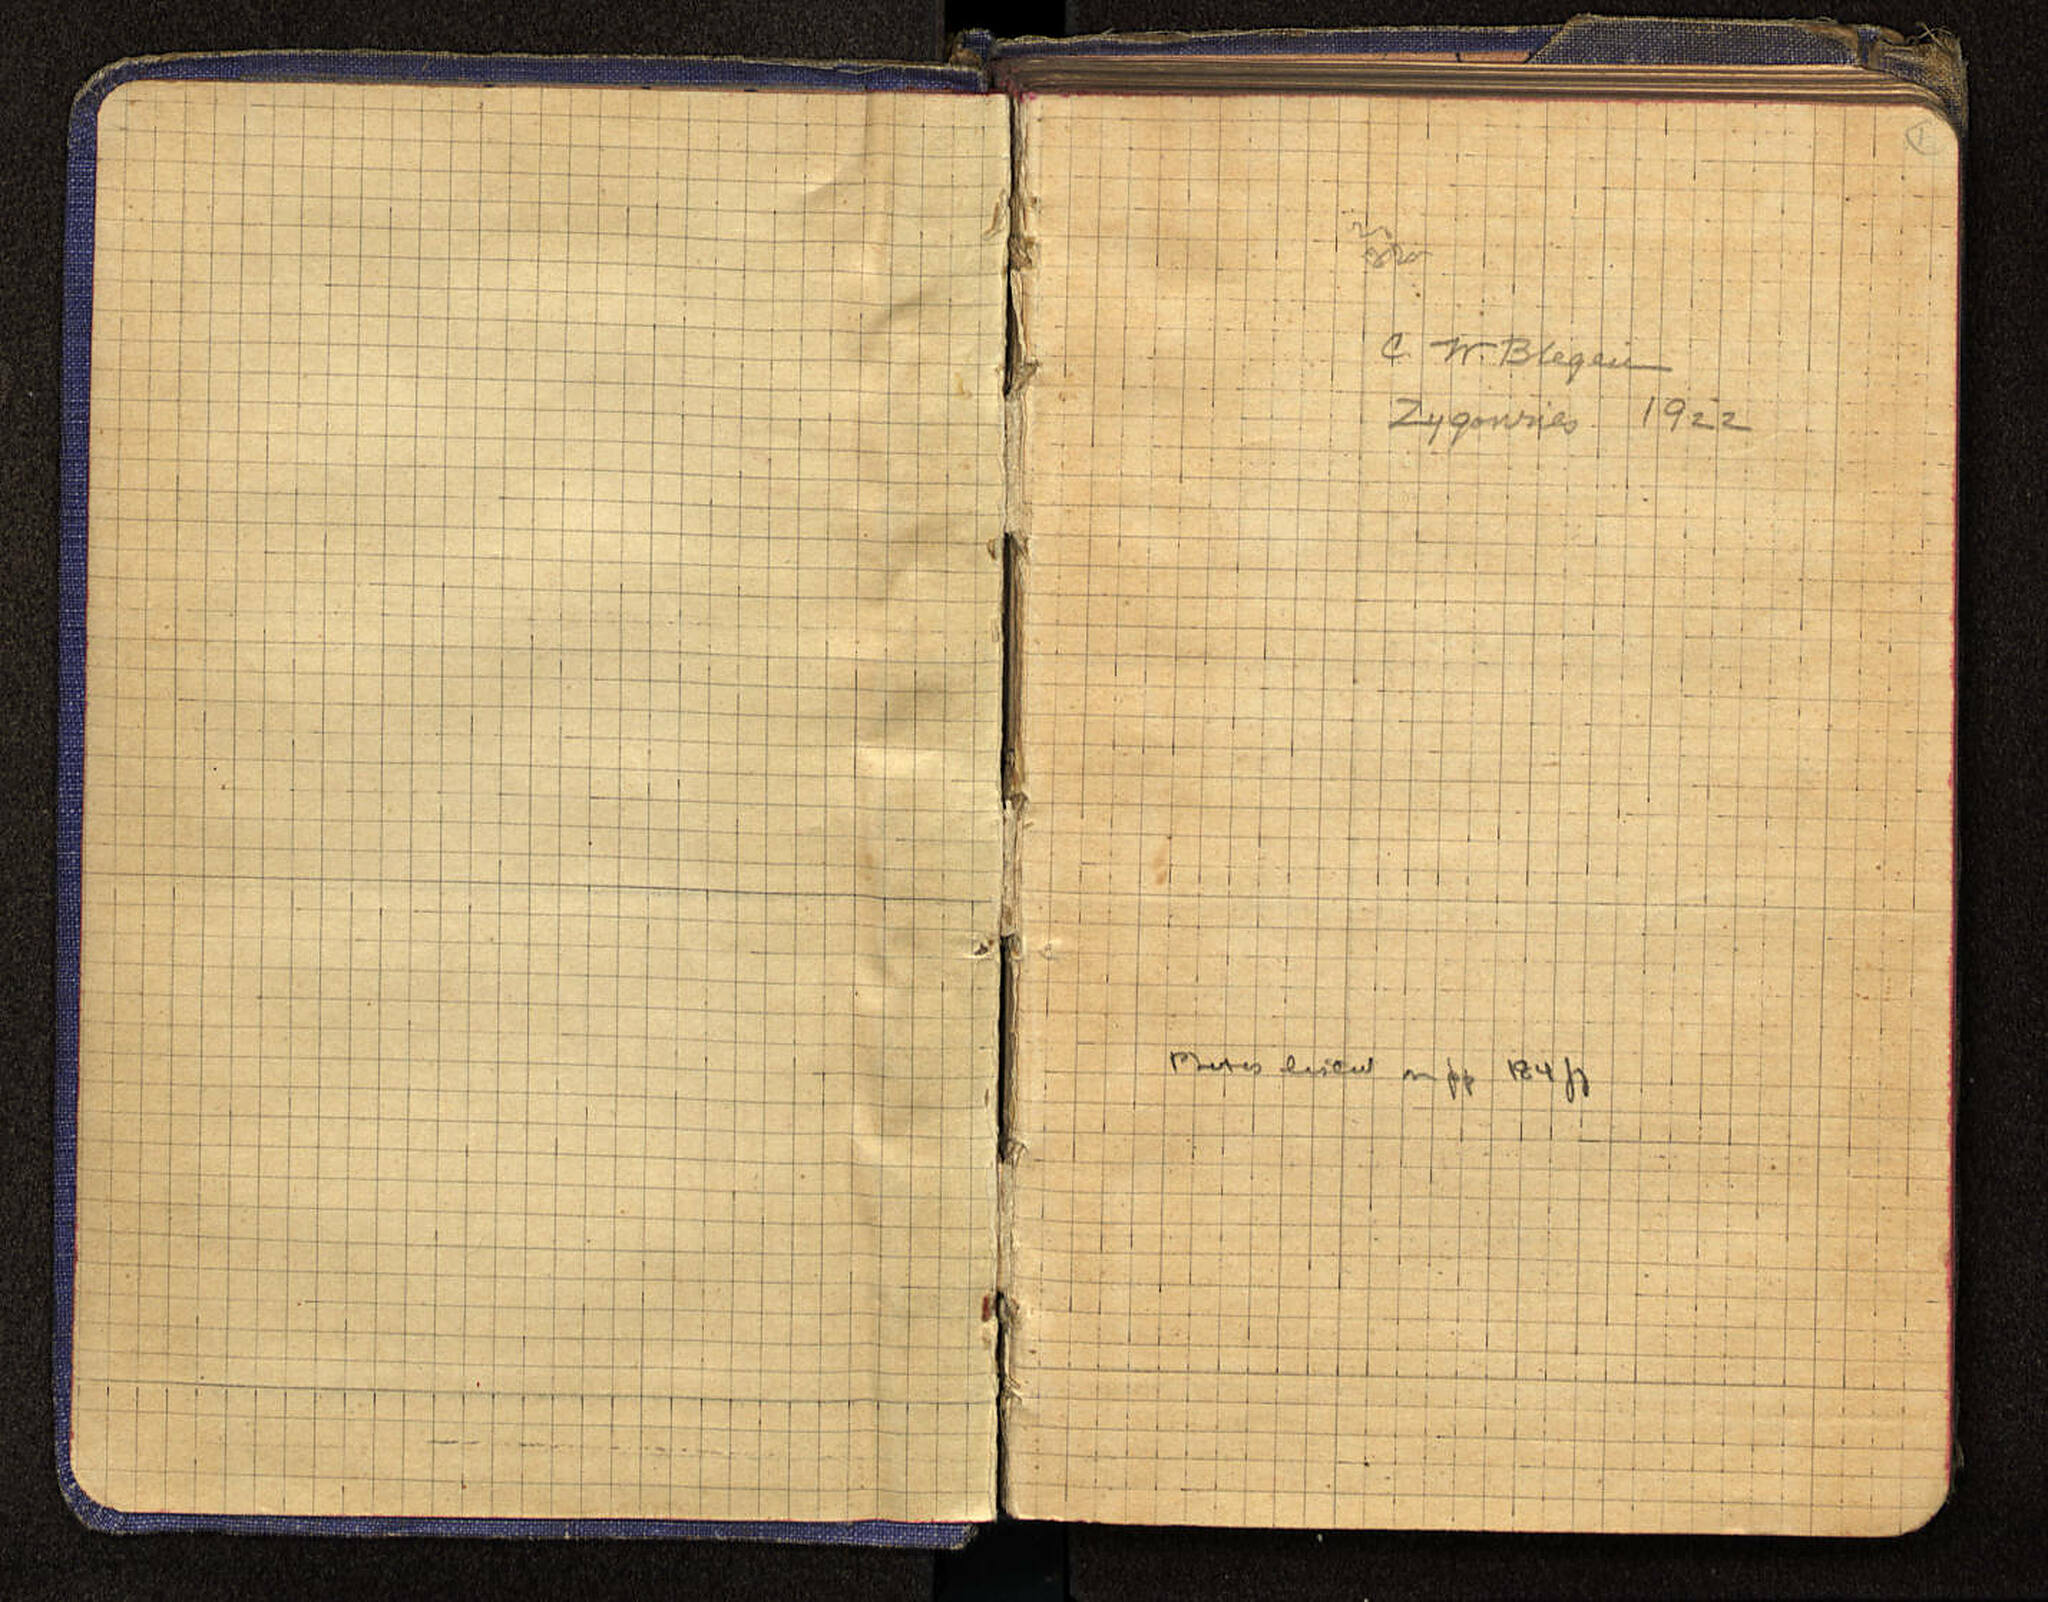 1
C. W. Blegen
Zygouries 1922
Photos listed on pp 184 ff